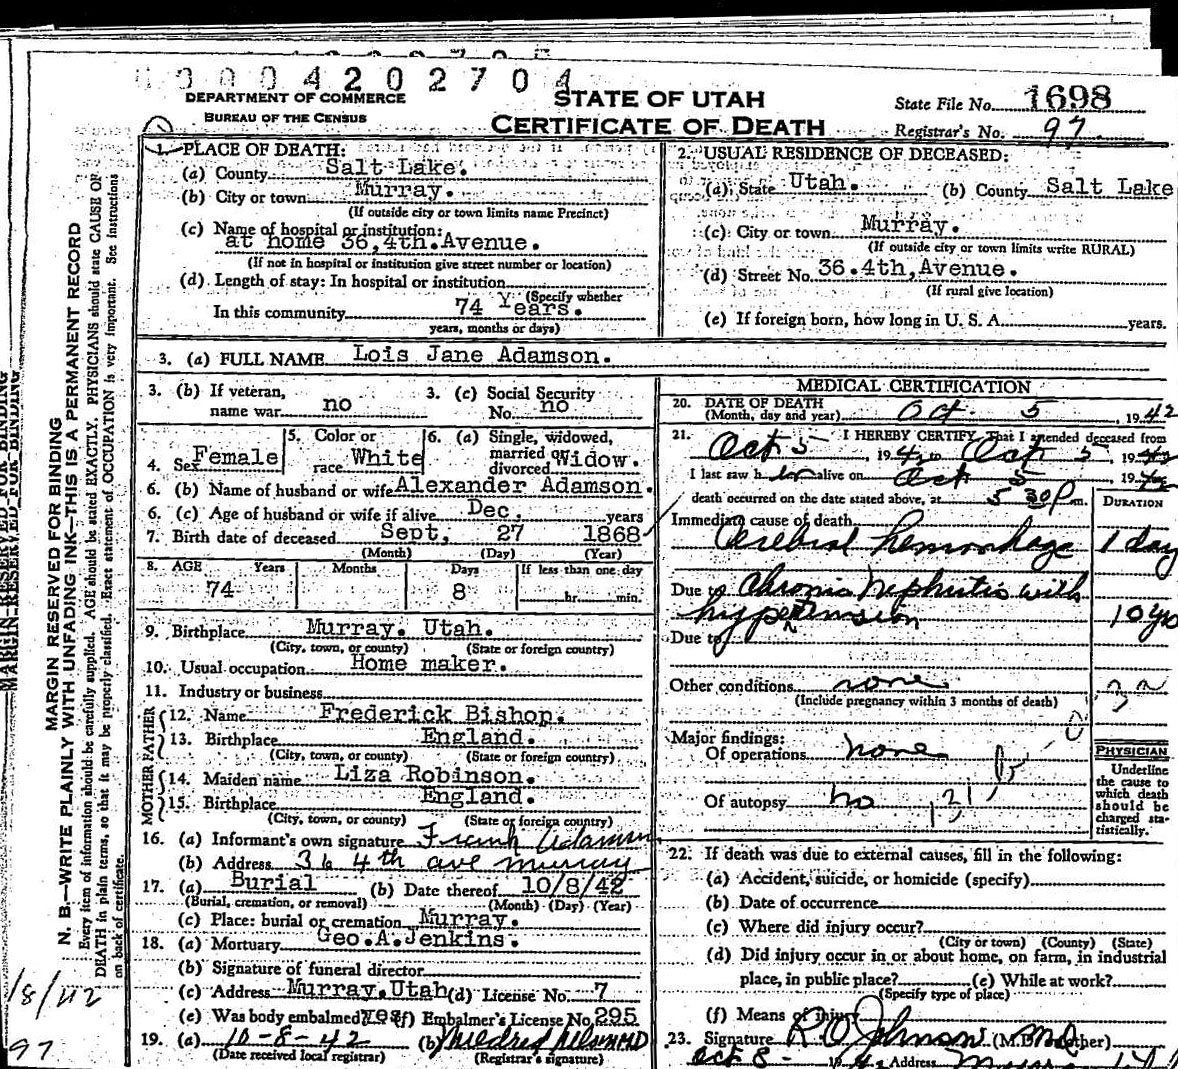 0004202704
DEPARTMENT OF COMMERCE
BUREAU OF THE CENSUS
STATE OF UTAH
CERTIFICATE OF DEATH
State File No. 1698
Registrar's No. 97
1. PLACE OF DEATH:
(a) County Salt Lake.
(b) City or town Murray.
(If outside city or town limits name Precinct)
(c) Name of hospital or institution:
at home 36,4th.Avenue.
(If not in hospital or institution give street number or location)
(d) Length of stay: In hospital or institution
(Specify whether
In this community 74 Years.
years, months or days)
2. USUAL RESIDENCE OF DECEASED:
(a) State Utah. (b) County Salt Lake
(c) City or town Murray.
(If outside city or town limits write RURAL)
(d) Street No. 36.4th,Avenue.
(If rural give location)
(e) If foreign born, how long in U. S. A. years.
3. (a) FULL NAME Lois Jane Adamson.
3. (b) If veteran, name war no
3. (c) Social Security No. no
4. Sex Female
5. Color or race White
6. (a) Single, widowed, married or divorced Widow.
6. (b) Name of husband or wife Alexander Adamson.
6. (c) Age of husband or wife if alive Dec. years
7. Birth date of deceased Sept, 27 1868
(Month) (Day) (Year)
8. AGE Years Months Days If less than one day
74 8 hr. min.
9. Birthplace Murray. Utah.
(City, town, or county) (State or foreign country)
10. Usual occupation Home maker.
11. Industry or business
FATHER
12. Name Frederick Bishop.
13. Birthplace England.
(City, town, or county) (State or foreign country)
MOTHER
14. Maiden name Liza Robinson.
15. Birthplace England.
(City, town, or county) (State or foreign country)
16. (a) Informant's own signature Frank Adamson
(b) Address 36 4th ave Murray
17. (a) Burial (b) Date thereof 10/8/42
(Burial, cremation, or removal) (Month) (Day) (Year)
(c) Place: burial or cremation Murray.
18. (a) Mortuary Geo.A.Jenkins.
(b) Signature of funeral director
(c) Address Murray.Utah (d) License No. 7
(e) Was body embalmed? yes (f) Embalmer's License No. 295
19. (a) 10-8-42 (b) Mildred Nelson MD
(Date received local registrar) (Registrar's signature)
MEDICAL CERTIFICATION
20. DATE OF DEATH
(Month, day and year) Oct. 5 1942
21. I HEREBY CERTIFY, That I attended deceased from
Oct 5, 1942 to Oct 5, 1942
I last saw her alive on Oct 5, 1942
death occurred on the date stated above, at 5 30 P m.
DURATION
Immediate cause of death
Cerebral hemorrhage 1 day
Due to Chronic Nephritis with
hypertension 10 yrs
Due to
Other conditions none
(Include pregnancy within 3 months of death)
Major findings:
Of operations none
Of autopsy no
131
PHYSICIAN
Underline
the cause to
which death
should be
charged sta-
tistically.
22. If death was due to external causes, fill in the following:
(a) Accident, suicide, or homicide (specify)
(b) Date of occurrence
(c) Where did injury occur?
(City or town) (County) (State)
(d) Did injury occur in or about home, on farm, in industrial
place, in public place? (e) While at work?
(Specify type of place)
(f) Means of injury
23. Signature R O Johnson (M.D. or other) MD
Oct 8 - 1942 Address Murray Utah
MARGIN RESERVED FOR BINDING
MARGIN-RESERVED FOR BINDING
MARGIN RESERVED FOR BINDING
N. B.—WRITE PLAINLY WITH UNFADING INK—THIS IS A PERMANENT RECORD
Every item of information should be carefully supplied. AGE should be stated EXACTLY. PHYSICIANS should state CAUSE OF
DEATH in plain terms, so that it may be properly classified. Exact statement of OCCUPATION is very important. See instructions
on back of certificate.
/8/42
97